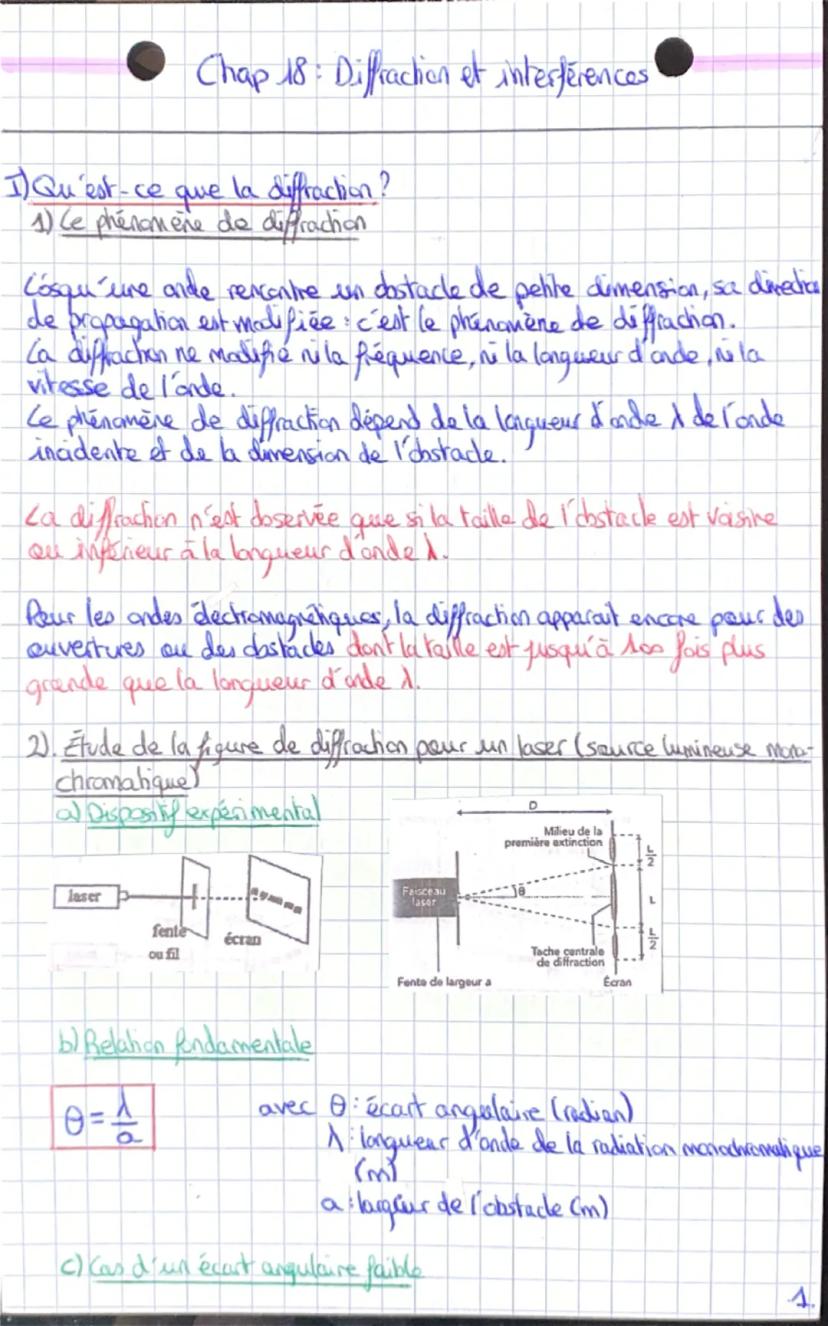 Chap 18 : Diffraction et interférences
I) Qu'est-ce que la diffraction ?
1) Le phénomène de diffraction
Lorsqu'une onde rencontre un obstacle de petite dimension, sa direction
de propagation est modifiée : c'est le phénomène de diffraction.
La diffraction ne modifie ni la fréquence, ni la longueur d'onde, ni la
vitesse de l'onde.
Le phénomène de diffraction dépend de la longueur d'onde λ de l'onde
incidente et de la dimension de l'obstacle.
La diffraction n'est observée que si la taille de l'obstacle est voisine
ou inférieur à la longueur d'onde λ.
Pour les ondes électromagnétiques, la diffraction apparait encore pour des
ouvertures ou des obstacles dont la taille est jusqu'à 100 fois plus
grande que la longueur d'onde λ.
2). Étude de la figure de diffraction pour un laser (source lumineuse mono-
chromatique)
a) Dispositif expérimental
laser
fente
ou fil
écran
D
Milieu de la
première extinction
L/2
Faisceau
laser
θ
L
L/2
Tache centrale
de diffraction
Fente de largeur a
Écran
b) Relation fondamentale
θ = λ/a
avec θ : écart angulaire (radian)
λ : longueur d'onde de la radiation monochromatique
(m)
a : largeur de l'obstacle (m)
c) Cas d'un écart angulaire faible
1.